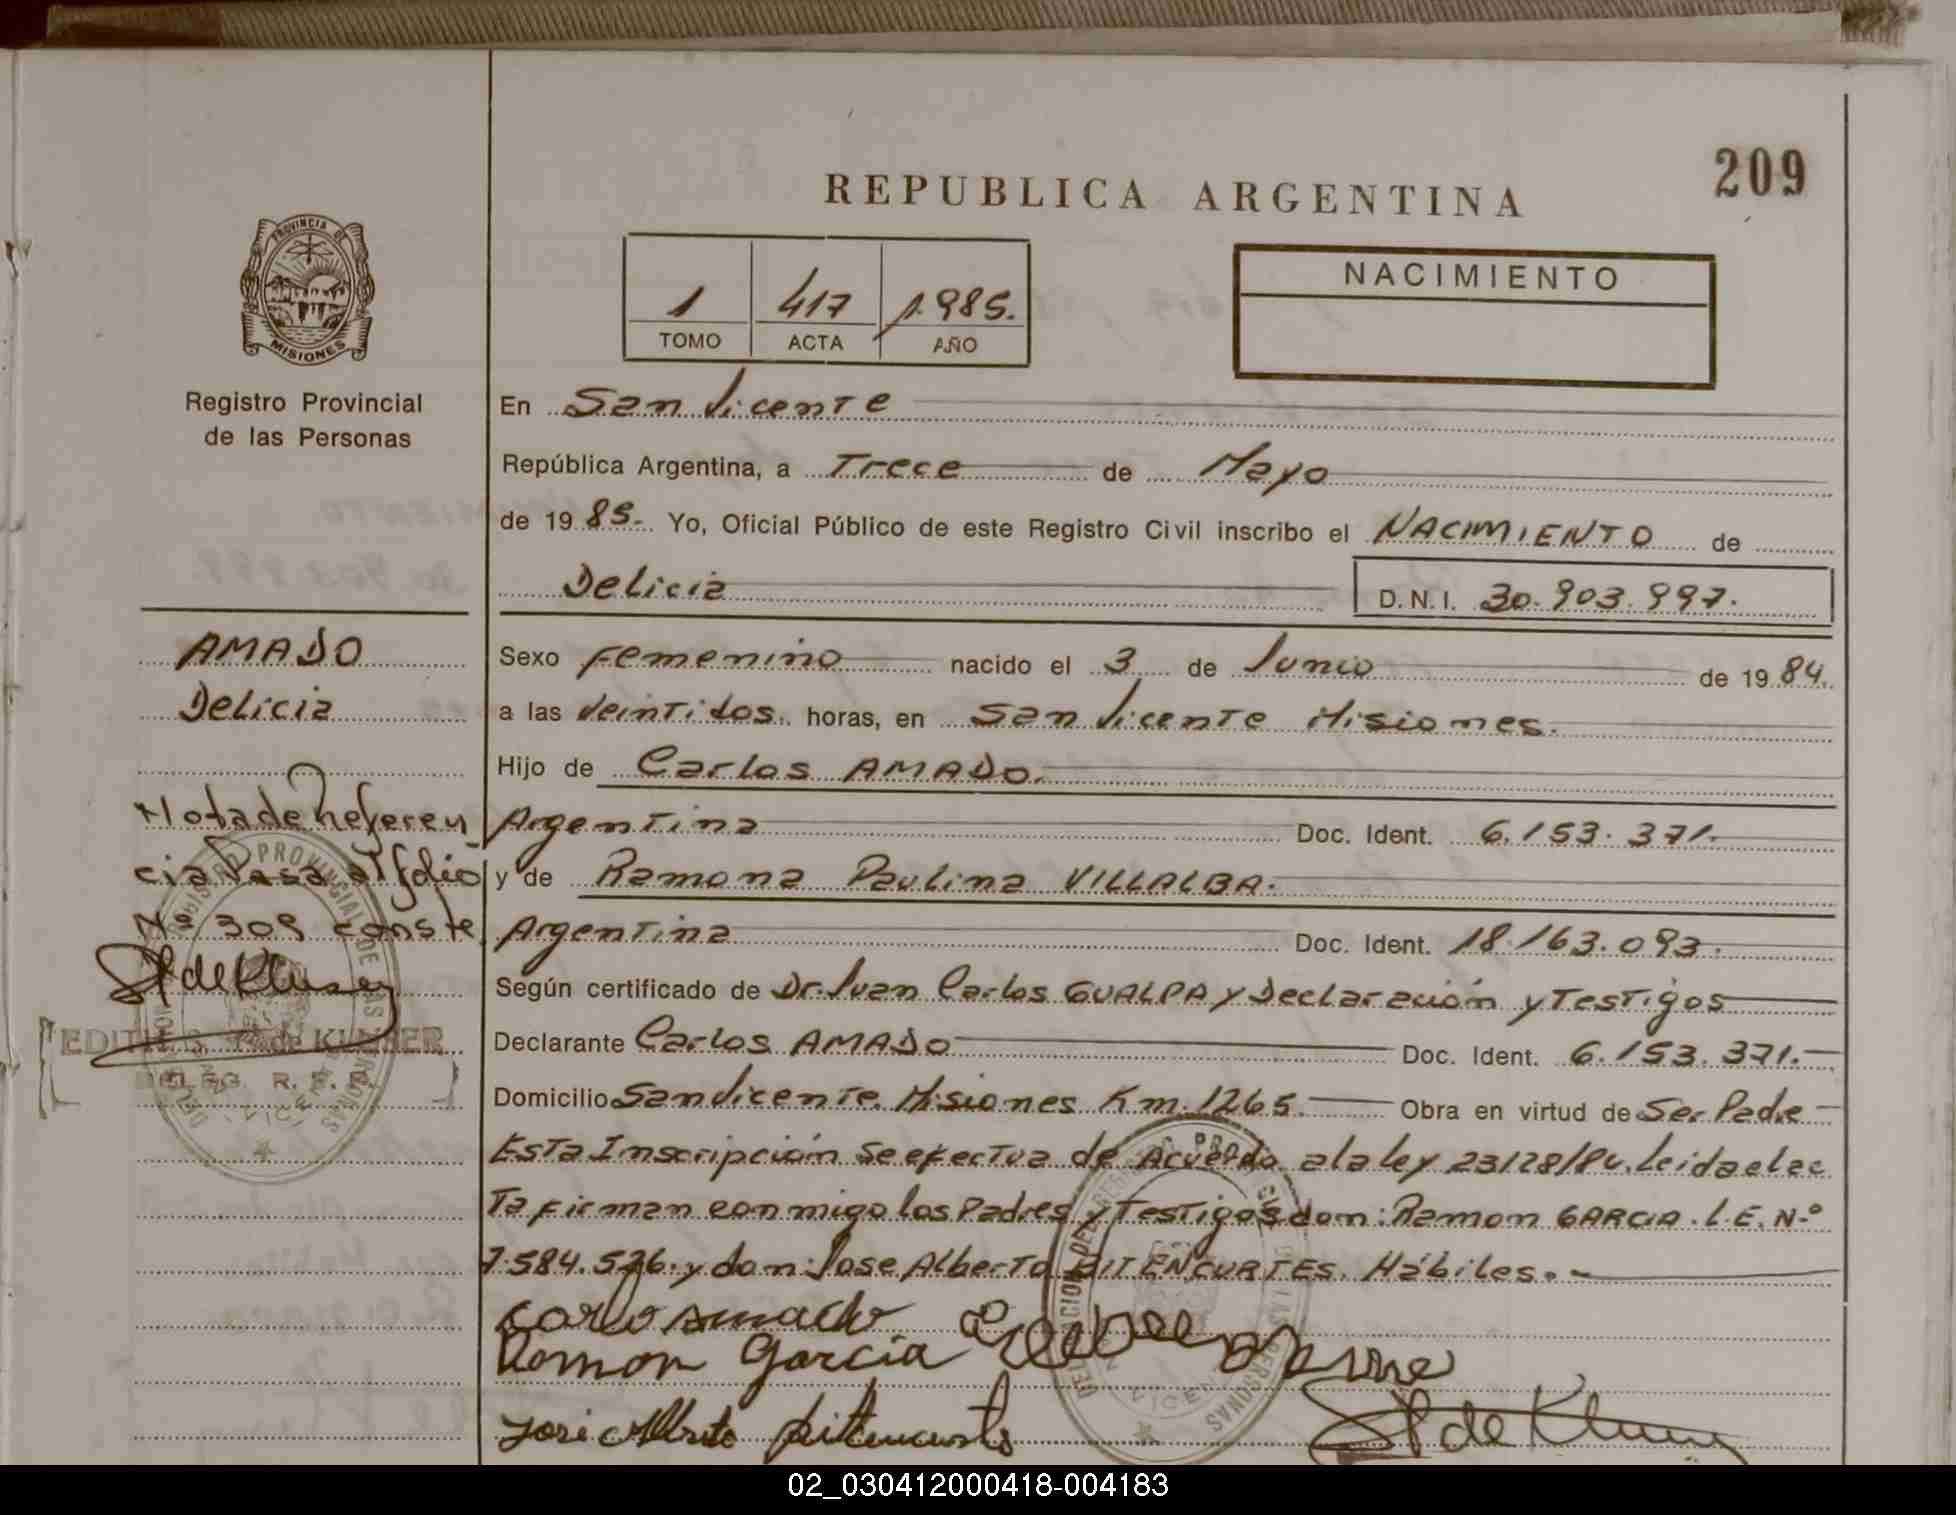 209
REPUBLICA ARGENTINA
PROVINCIA DE
MISIONES
Registro Provincial
de las Personas
1 417 1.985.
TOMO ACTA AÑO
NACIMIENTO
En San Vicente
República Argentina, a Trece de Mayo
de 1985.- Yo, Oficial Público de este Registro Civil inscribo el NACIMIENTO de
Delicia D.N.I. 30.903.997.
AMADO
Delicia
Sexo Femenino nacido el 3 de Junio de 1984.
a las Veintidos horas, en San Vicente Misiones.
Hijo de Carlos AMADO.
Argentina Doc. Ident. 6.153.371.
y de Ramona Paulina VILLALBA.
Argentina Doc. Ident. 18.163.093.
Según certificado de Dr. Juan Carlos GUALPA y Declaración y Testigos
Declarante Carlos AMADO Doc. Ident. 6.153.371.
Domicilio San Vicente. Misiones Km. 1265. Obra en virtud de Ser Padre
Esta Inscripción se efectua de Acuerdo a la Ley 23128/84. Leida el ac
ta firman conmigo los Padres y Testigos don: Ramon GARCIA. L.E. Nº
7.584.526. y don: Jose Alberto BITENCURTES. Hábiles.-
Nota de Referen
cia Pasa al folio
Nº 309 conste
EDITH S. de KLUSER
DELEG. R. P. P.
Carlos Amado
Ramon Garcia
Jose Alberto
02_030412000418-004183